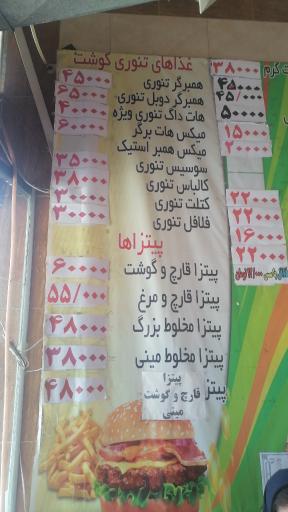 غذاهای تنوری گوشت
همبرگر تنوری ۴۵۰۰۰
همبرگر دوبل تنوری ۶۵۰۰۰
هات داگ تنوری ویژه ۴۰۰۰۰
میکس هات برگر ۶۰۰۰۰
میکس همبر استیک
سوسیس تنوری ۳۵۰۰۰
کالباس تنوری ۳۸۰۰۰
کتلت تنوری ۳۰۰۰۰
فلافل تنوری ۳۰۰۰۰
پیتزاها
پیتزا قارچ و گوشت ۶۰۰۰۰
پیتزا قارچ و مرغ ۵۵/۰۰۰
پیتزا مخلوط بزرگ ۴۸۰۰۰
پیتزا مخلوط مینی ۳۸۰۰۰
پیتزا قارچ و گوشت مینی ۴۸۰۰۰
کرم ۳۸۰۰۰
۴۵۰۰۰
۴۵/۰۰۰
۵۰۰۰
۱۵۰۰۰
۲۰۰۰
۲۲۰۰۰
۲۲۰۰۰
۱۶۰۰۰
۲۲۰۰۰